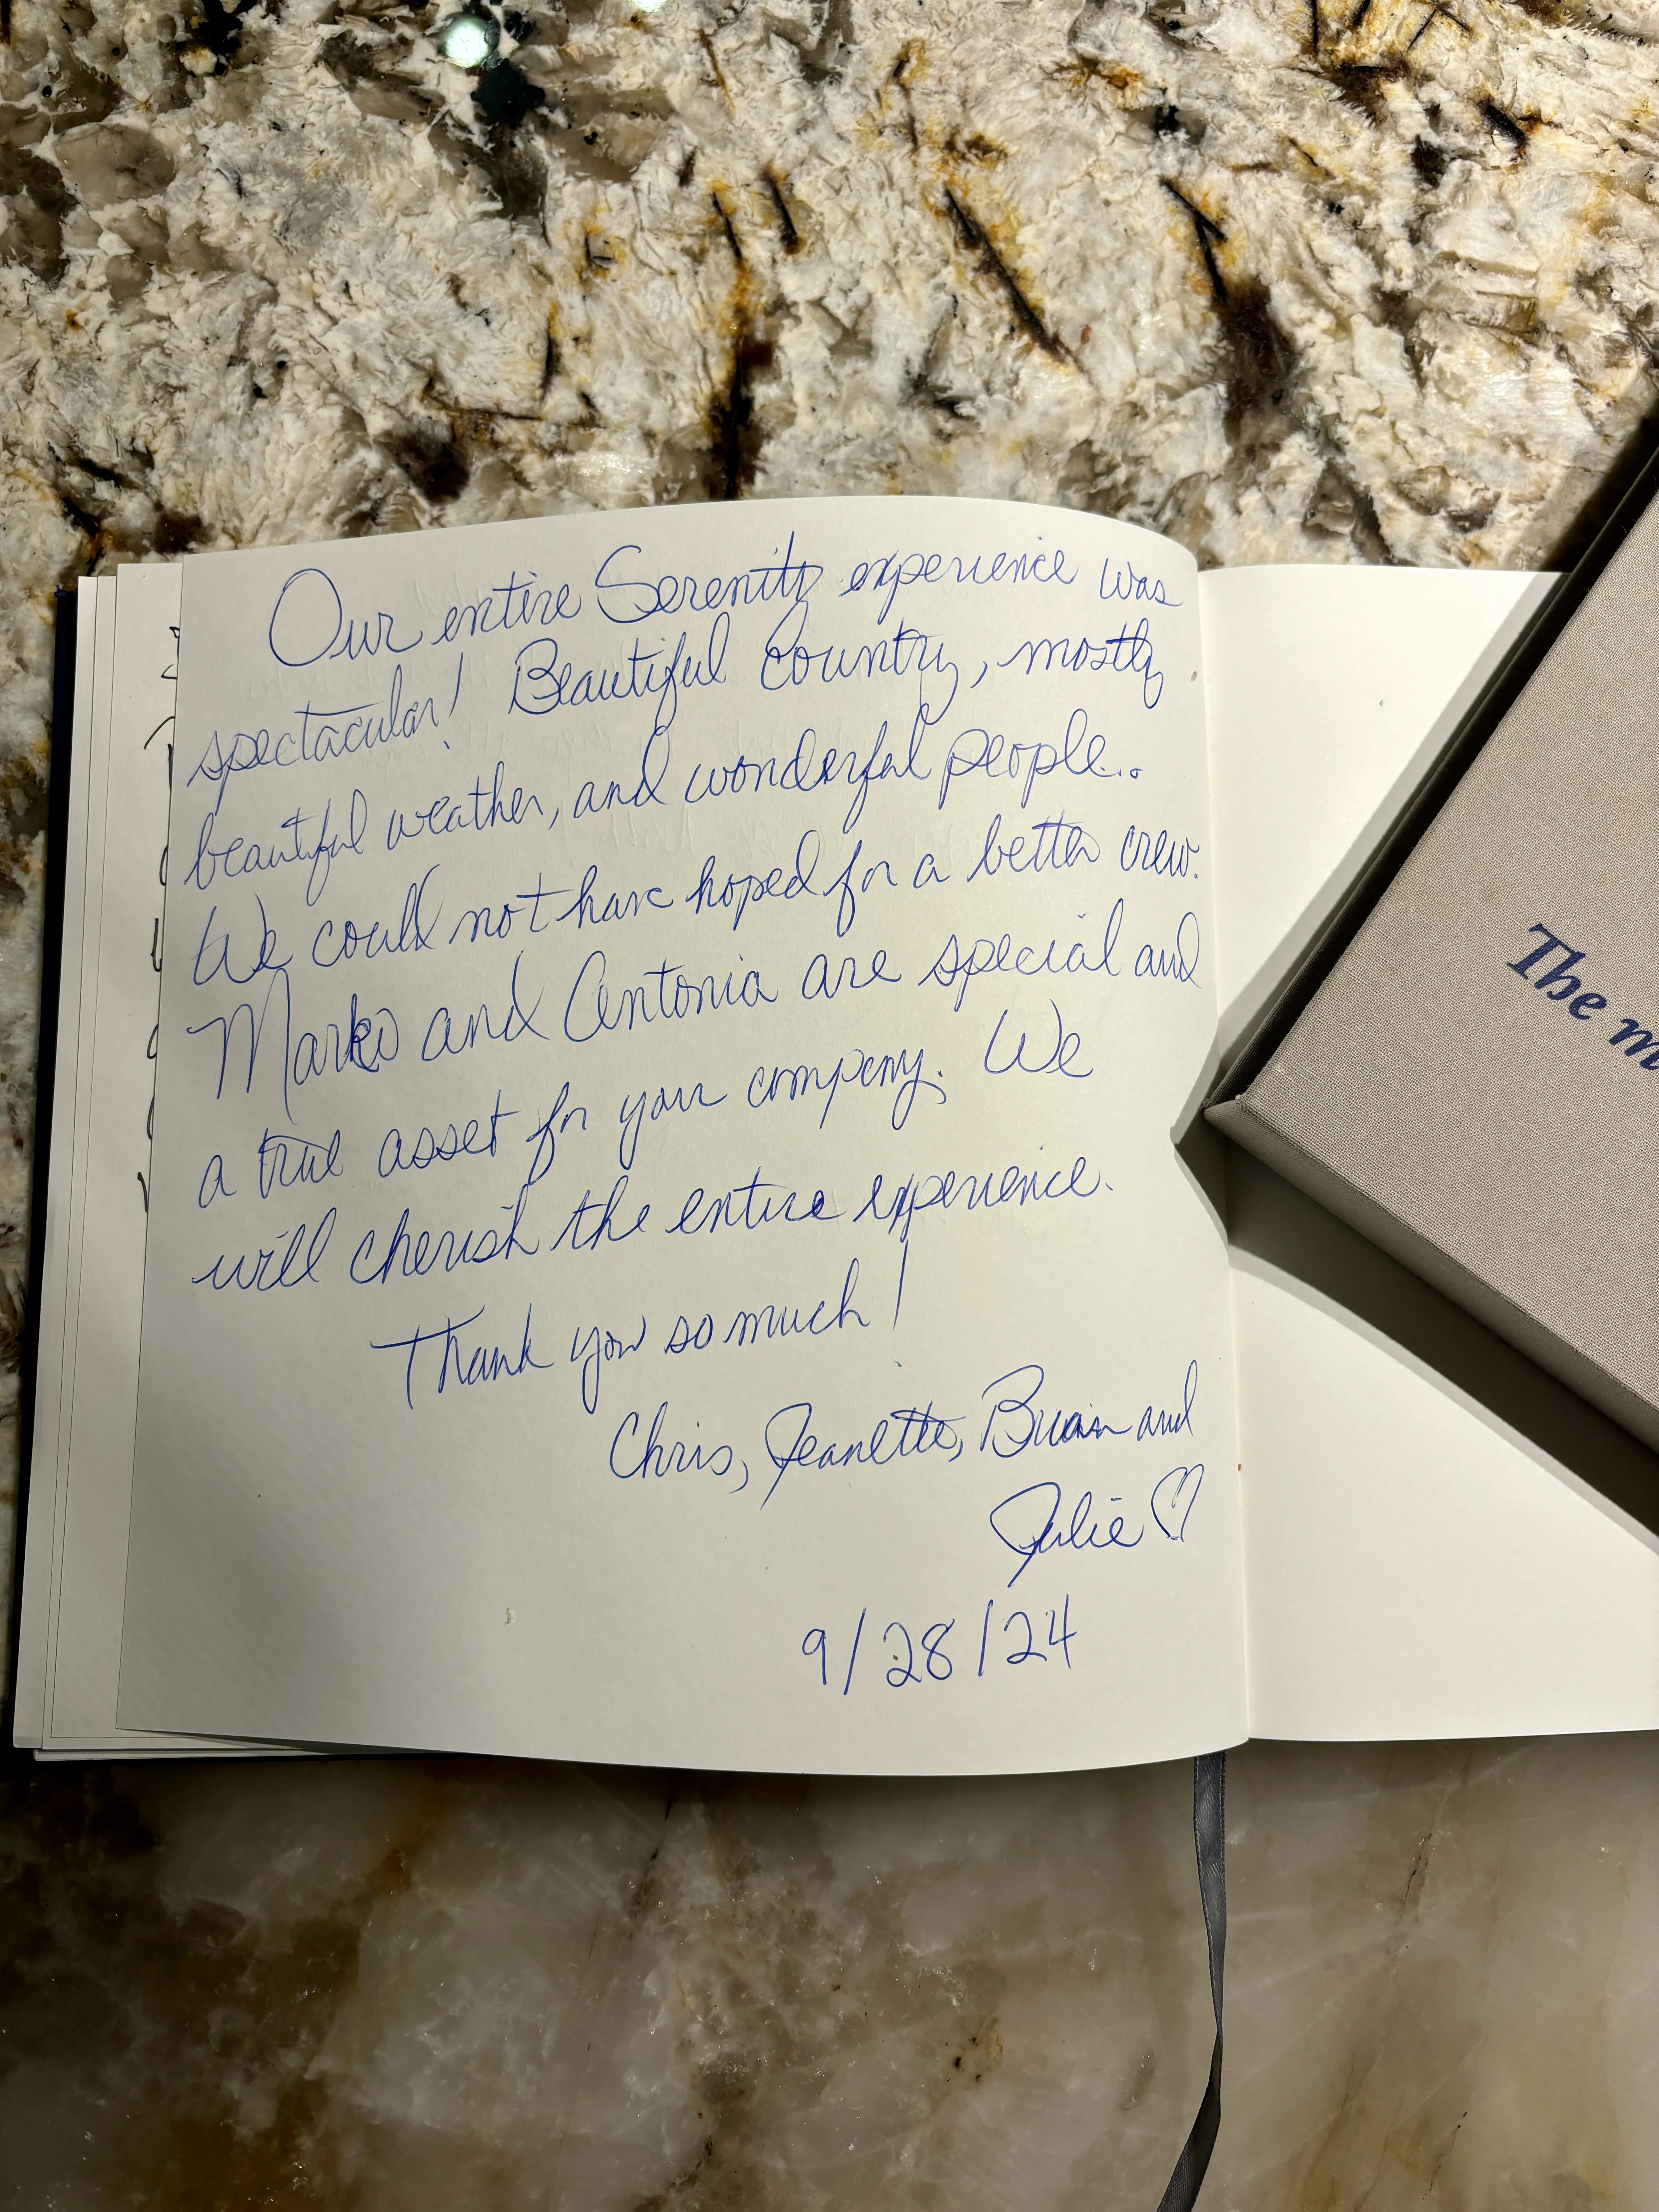 Our entire Serenity experience was
spectacular! Beautiful Country, mostly
beautiful weather, and wonderful people...
We could not have hoped for a better crew.
Marko and Antonia are special and
a true asset for your company. We
will cherish the entire experience.
Thank you so much!
Chris, Jeanette, Brian and
Julie ♡
9/28/24
The m